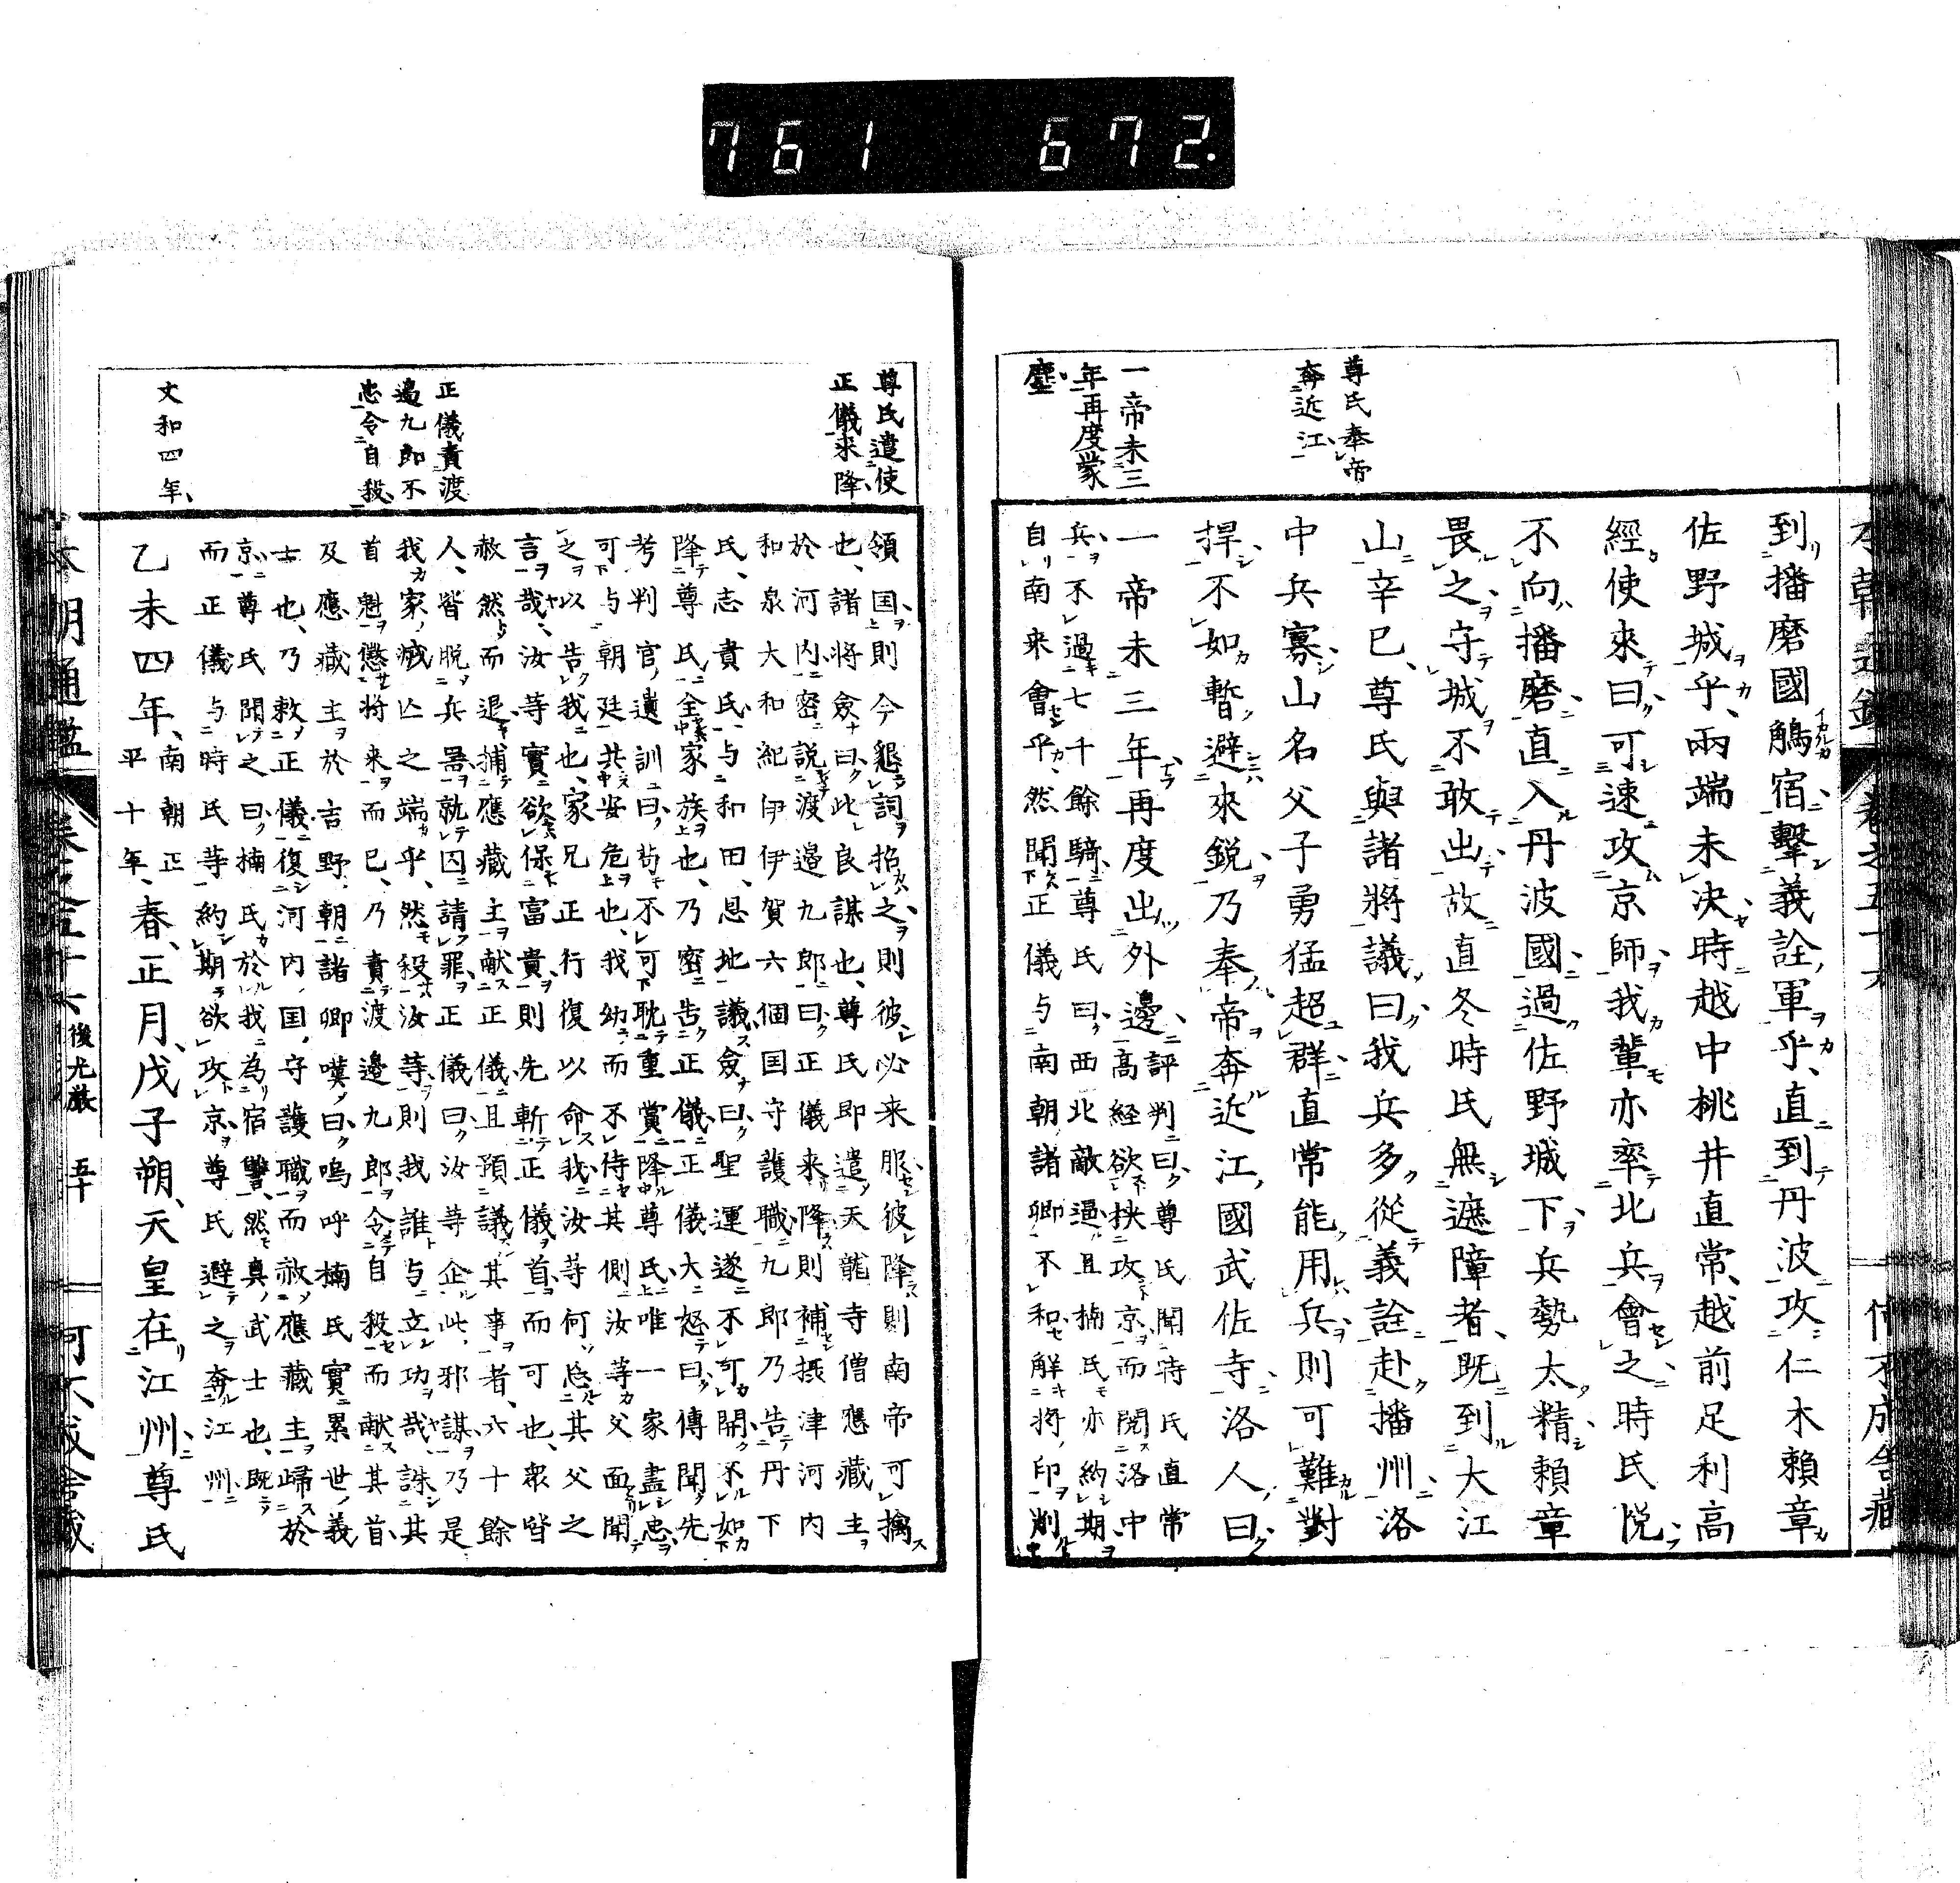 761 672.
尊氏奉帝
奔近江
一帝未三
年再度蒙
塵
到播磨國鵤宿擊義詮軍乎直到丹波攻仁木賴章
佐野城乎兩端未決時越中桃井直常越前足利高
經使來曰可速攻京師我輩亦率北兵會之時氏悦
不向播磨直入丹波國過佐野城下兵勢太精賴章
畏之守城不敢出故直冬時氏無遮障者既到大江
山辛巳尊氏與諸將議曰我兵多從義詮赴播州洛
中兵寡山名父子勇猛超群直常能用兵則可難對
捍不如暫避來鋭乃奉帝奔近江國武佐寺洛人曰
一帝未三年再度出外邊
評判曰尊氏聞時氏直常
高經欲挾攻京而閲洛中
兵不過七千餘騎尊氏曰西北敵逼且楠氏亦約期
自南来會乎然聞正儀与南朝諸卿不和解將印削
尊氏遣使
正儀来降
正儀責渡
邉九郎不
忠令自殺
文和四年
領国則今懇詞招之則彼必来服彼降則南帝可擒
也諸將僉曰此良謀也尊氏即遣天龍寺僧應藏主
於河内密説渡邉九郎曰正儀来降則補摂津河内
和泉大和紀伊伊賀六個国守護職九郎乃告丹下
氏志貴氏与和田恩地議僉曰聖運遂不可開不如
降尊氏全家族也乃密告正儀正儀大怒曰傳聞先
考判官遺訓曰苟不可耽重賞降尊氏唯一家盡忠
可与朝廷共安危也我幼而不侍其側汝等父面聞
之以告我也家兄正行復以命我汝等何忘其父之
言哉汝等實欲保富貴則先斬正儀首而可也衆皆
赦然而退捕應藏主献正儀且預議其事者六十餘
人皆脱兵噐就囚請罪正儀曰汝等企此邪謀乃是
我家滅亡之端乎然殺汝等則我誰与立功哉誅其
首魁懲將来而已乃責渡邉九郎令自殺而献其首
及應藏主於吉野朝諸卿嘆曰嗚呼楠氏實累世義
士也乃敕正儀復河内国守護職而赦應藏主歸於
京尊氏聞之曰楠氏於我為宿讐然真武士也既
而正儀与時氏等約期欲攻京尊氏避之奔江州
乙未四年
南朝正
平十年
春正月戊子朔天皇在江州尊氏
後光嚴 五十